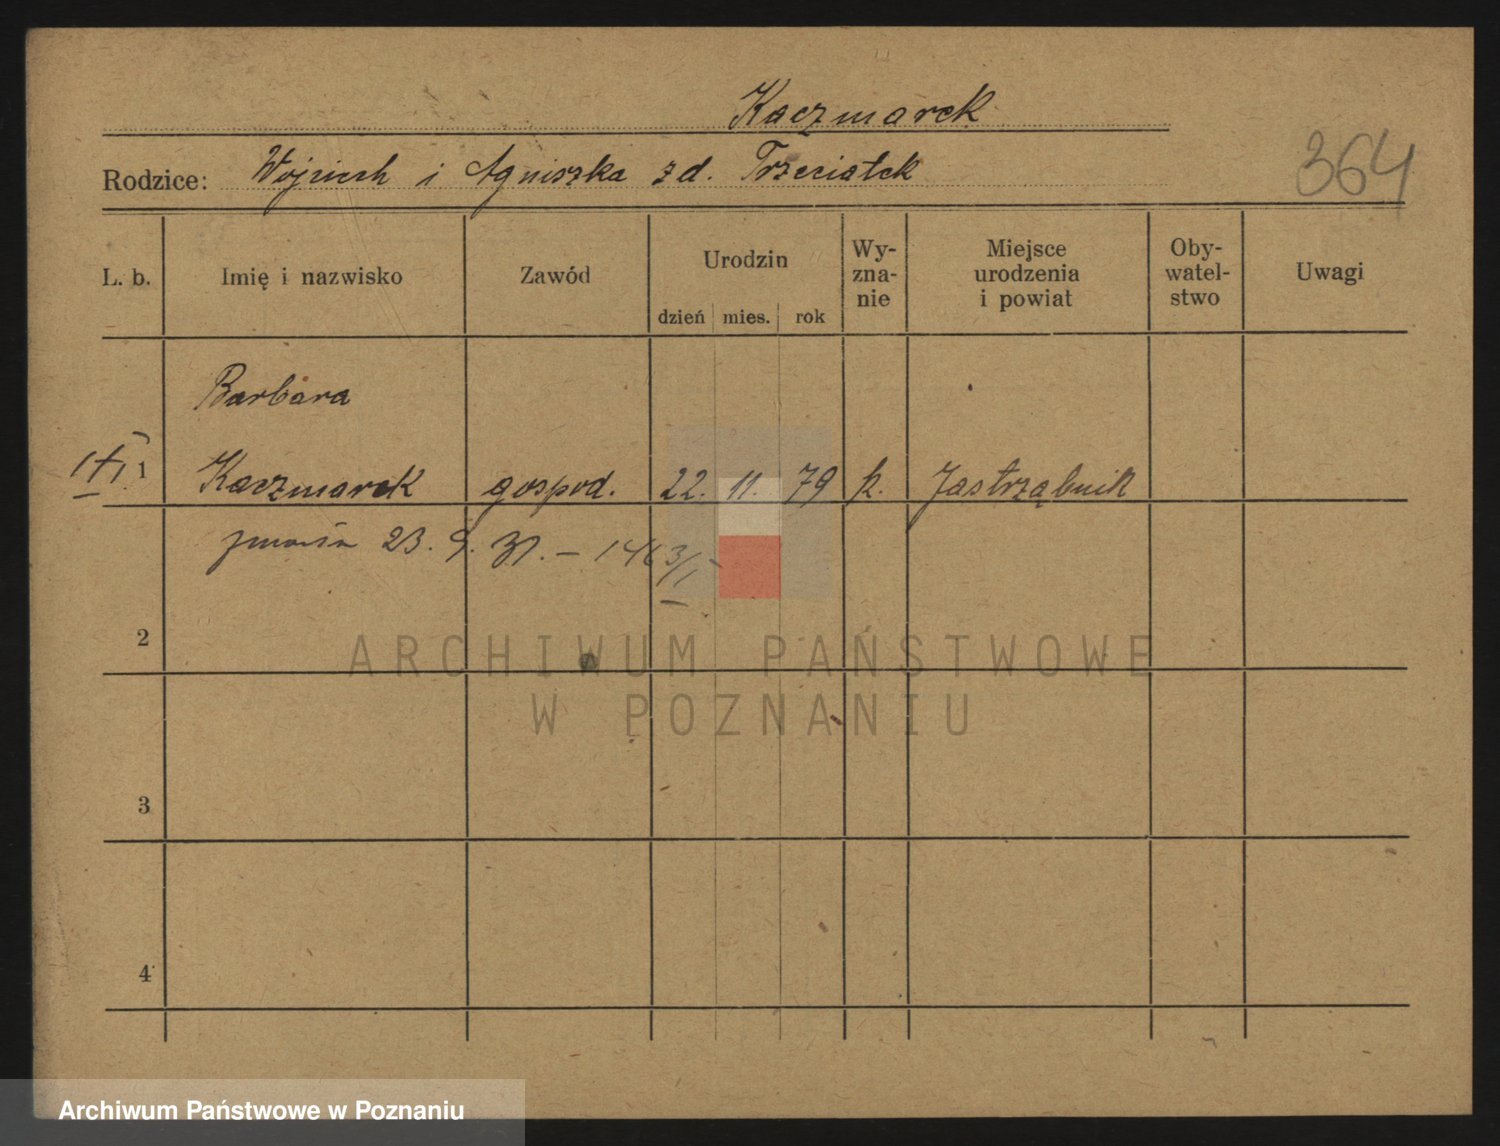 Kaczmarek
364
Rodzice: Wojciech i Agnieszka z d. Trzeciatek
L. b.
Imię i nazwisko
Zawód
Urodzin
dzień mies. rok
Wy-
zna-
nie
Miejsce
urodzenia
i powiat
Oby-
watel-
stwo
Uwagi
Barbara
1 Kaczmarek gospod. 22. 11. 79 k. Jastrząbnik
zmarła 23. 9. 31. – 1463/I
2
3
4
ARCHIWUM PAŃSTWOWE
W POZNANIU
Archiwum Państwowe w Poznaniu